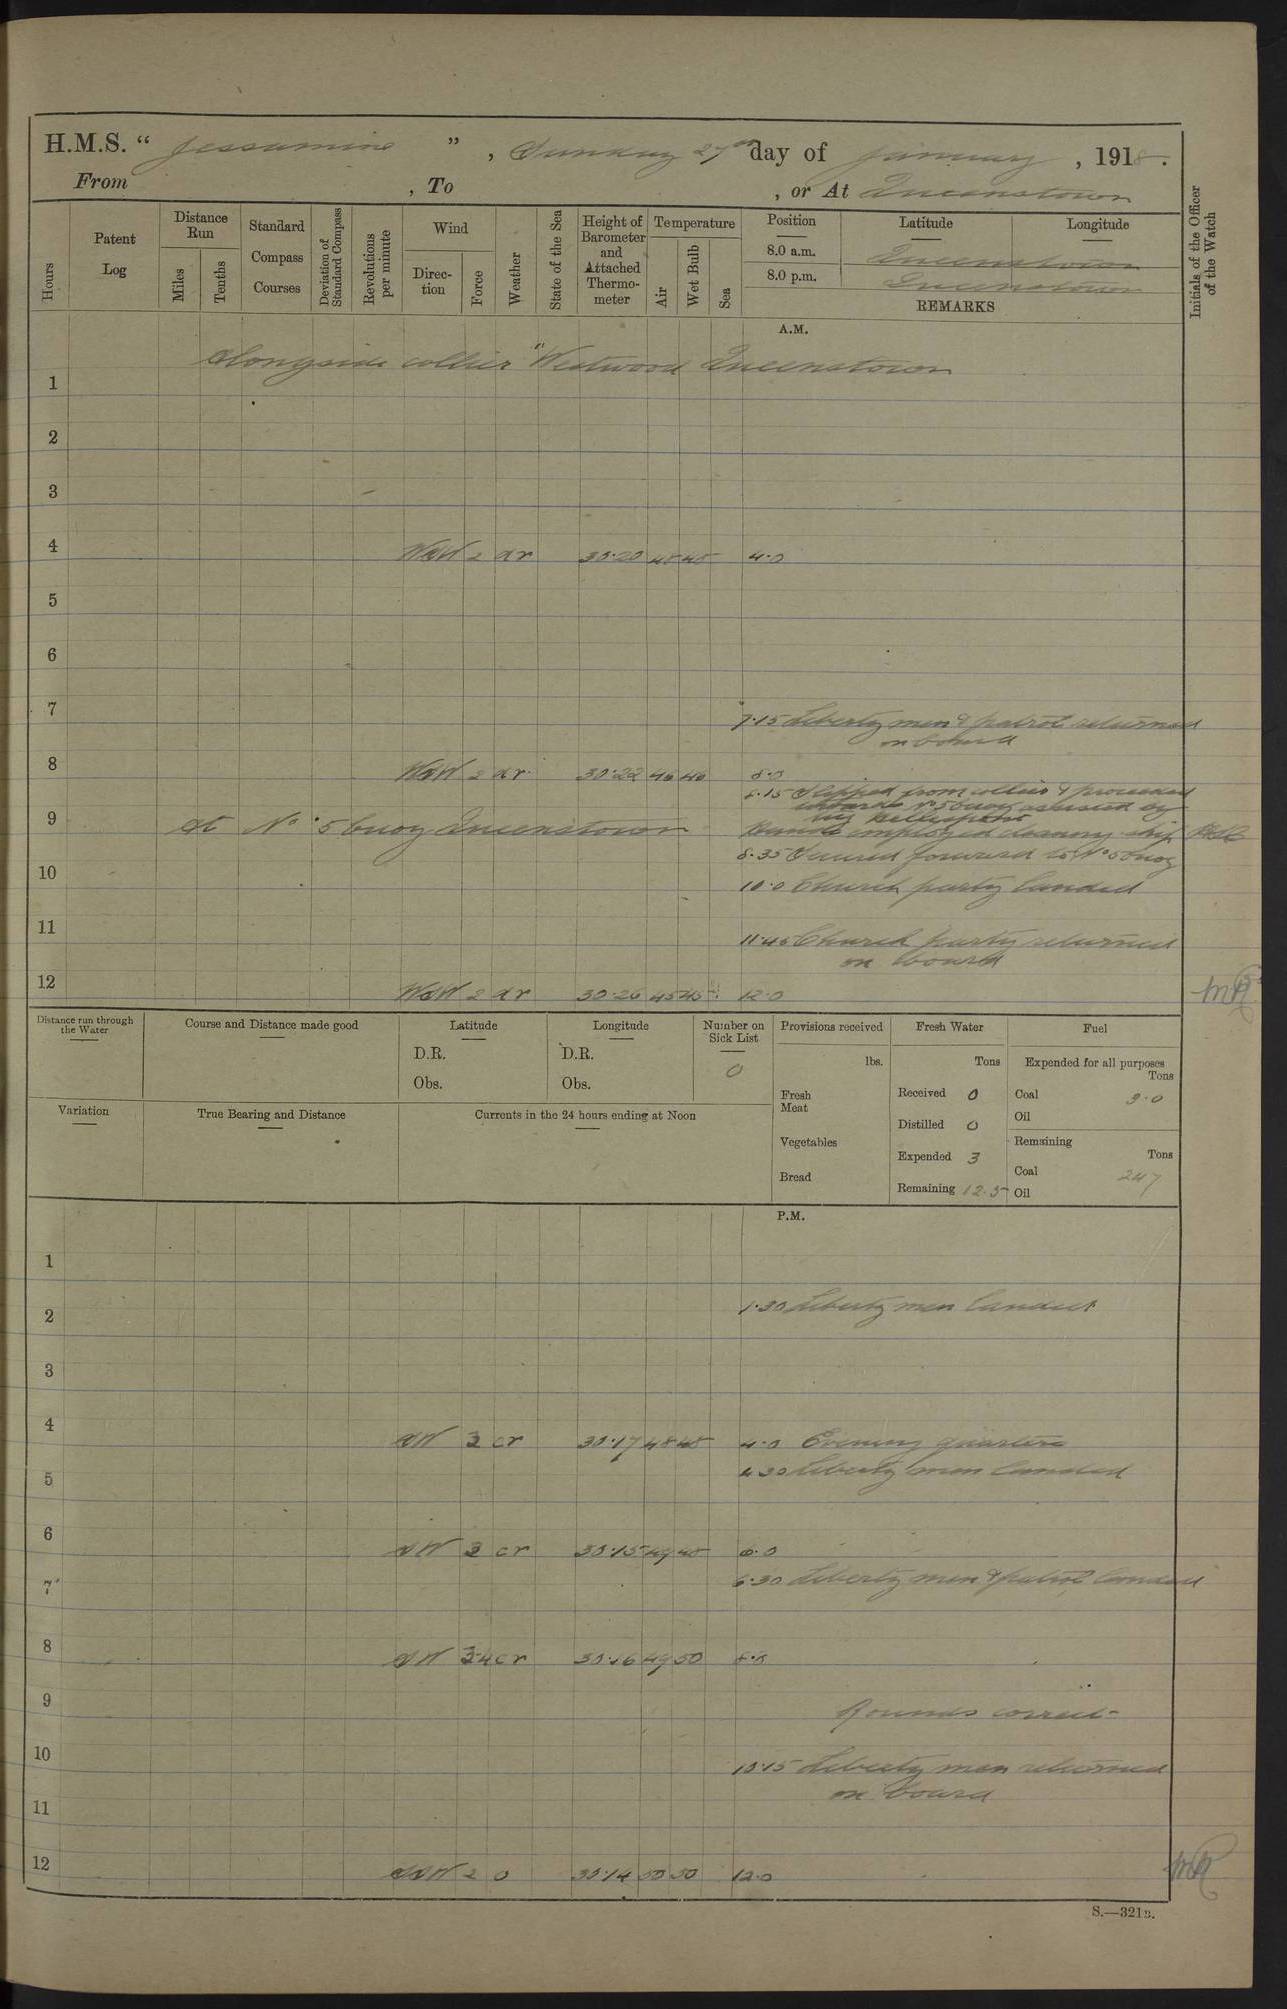 H.M.S. “ Jessamine ” , Sunday 27th day of January , 1918.
From , To , or At Queenstown
Hours
Patent Log
Distance Run
Miles
Tenths
Standard Compass Courses
Deviation of Standard Compass
Revolutions per minute
Wind
Direc-tion
Force
Weather
State of the Sea
Height of Barometer and Attached Thermo-meter
Temperature
Air
Wet Bulb
Sea
Position
Latitude
Longitude
8.0 a.m. Queenstown
8.0 p.m. Queenstown
REMARKS
Initials of the Officer of the Watch
A.M.
Alongside collier "Westwood Queenstown
1
2
3
4 WSW 2 dr 30.20 48 48 4.0
5
6
7
7.15 Liberty men & patrol returned
on board
8 WSW 2 dr 30.22 46 46 8.0
8.15 Slipped from collier & proceeded
towards No 5 buoy assisted by
tug Hellespont
9 At No 5 buoy Queenstown
Hands employed cleaning ship
8.35 Secured forward to No 5 buoy
10
10.0 Church party landed
11
11.45 Church party returned
on board
12 WSW 2 dr 30.26 45 45 12.0
Distance run through the Water
Course and Distance made good
Latitude
D.R.
Obs.
Longitude
D.R.
Obs.
Number on Sick List
0
Provisions received
lbs.
Fresh Meat
Vegetables
Bread
Fresh Water
Tons
Received 0
Distilled 0
Expended 3
Remaining 12.5
Fuel
Expended for all purposes
Tons
Coal 9.0
Oil
Remaining
Tons
Coal 247
Oil
Variation
True Bearing and Distance
Currents in the 24 hours ending at Noon
P.M.
1
1.30 Liberty men landed
2
3
4 SW 3 cr 30.17 48 48 4.0 Evening quarters
4.30 Liberty men landed
5
6 SW 3 cr 30.15 49 48 6.0
6.30 Liberty men & patrol landed
7
8 SW 3.4 cr 30.16 49 50 8.0
9
Rounds correct
10
10.15 Liberty men returned
on board
11
12 SSW 2 0 30.14 50 50 12.0
S.—321B.